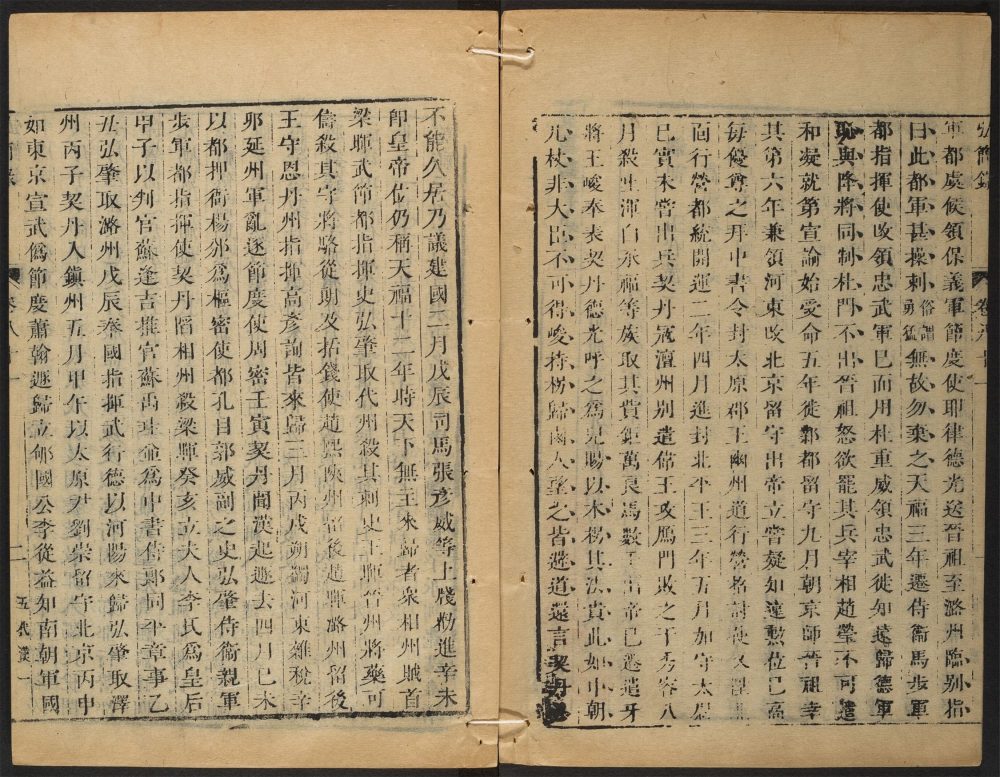 弘簡錄
卷八十一
軍都虞候領保義軍節度使耶律德光送晉祖至潞州臨別指
曰此都軍甚操剌俗謂勇猛無故勿棄之天福三年遷侍衞馬步軍
都指揮使改領忠武軍已而用杜重威領忠武徙知遠歸德軍
恥與降將同制杜門不出晉祖怒欲罷其兵宰相趙瑩不可遣
和凝就第宣諭始受命五年徙鄴都留守九月朝京師晉祖幸
其第六年兼領河東改北京留守出帝立嘗疑知遠勲位已高
每優尊之拜中書令封太原郡王幽州道行營招討使又
面行營都統開運二年四月進封北平王三年五月加守太尉
已實未嘗出兵契丹寇澶州別遣偉王攻鴈門敗之于秀容八
月殺吐渾白承福等族取其貲鉅萬良馬數千出帝已遷遣牙
將王峻奉表契丹德光呼之爲兒賜以木柺其法貴此如中朝
几杖非大臣不可得峻持柺歸虜人望之皆避道還言契丹
不能久居乃議建國二月戊辰司馬張彥威等上牋勸進辛未
卽皇帝位仍稱天福十二年時天下無主來歸者衆相州賊首
梁暉武節都指揮史弘肇取代州殺其刺史王暉晉州將藥可
儔殺其守將駱從朗及括錢使趙熙陝州留後趙暉潞州留後
王守恩丹州指揮高彥詢皆來歸三月丙戌朔蠲河東雜稅辛
卯延州軍亂逐節度使周密壬寅契丹聞漢起遯去四月己未
以都押衙楊邠爲樞密使都孔目郭威副之史弘肇侍衞親軍
步軍都指揮使契丹陷相州殺梁暉癸亥立夫人李氏爲皇后
甲子以判官蘇逢吉推官蘇禹珪竝爲中書侍郎同平章事乙
丑弘肇取潞州戊辰奉國指揮武行德以河陽來歸弘肇取澤
州丙子契丹入鎮州五月甲午以太原尹劉崇留守北京丙申
如東京宣武僞節度蕭翰遯歸立郇國公李從益知南朝軍國
卷八十一
二
五代漢一